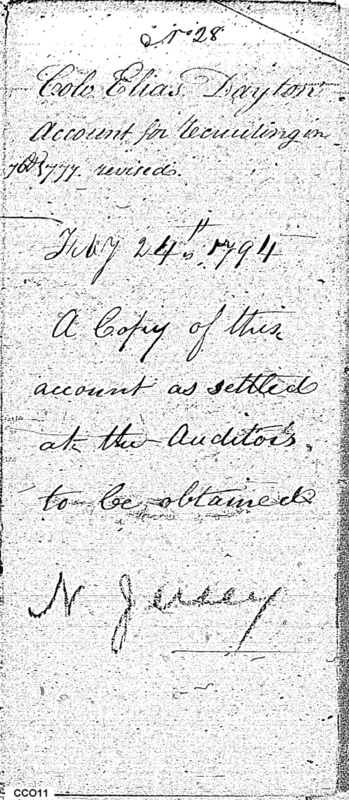 No 28
Colo Elias Dayton
Account for Recruiting in
76 & 1777. revised.
Feby 24th 1794
A Copy of this
account as settled
at the Auditors
to be obtained
N Jersey
CCO11